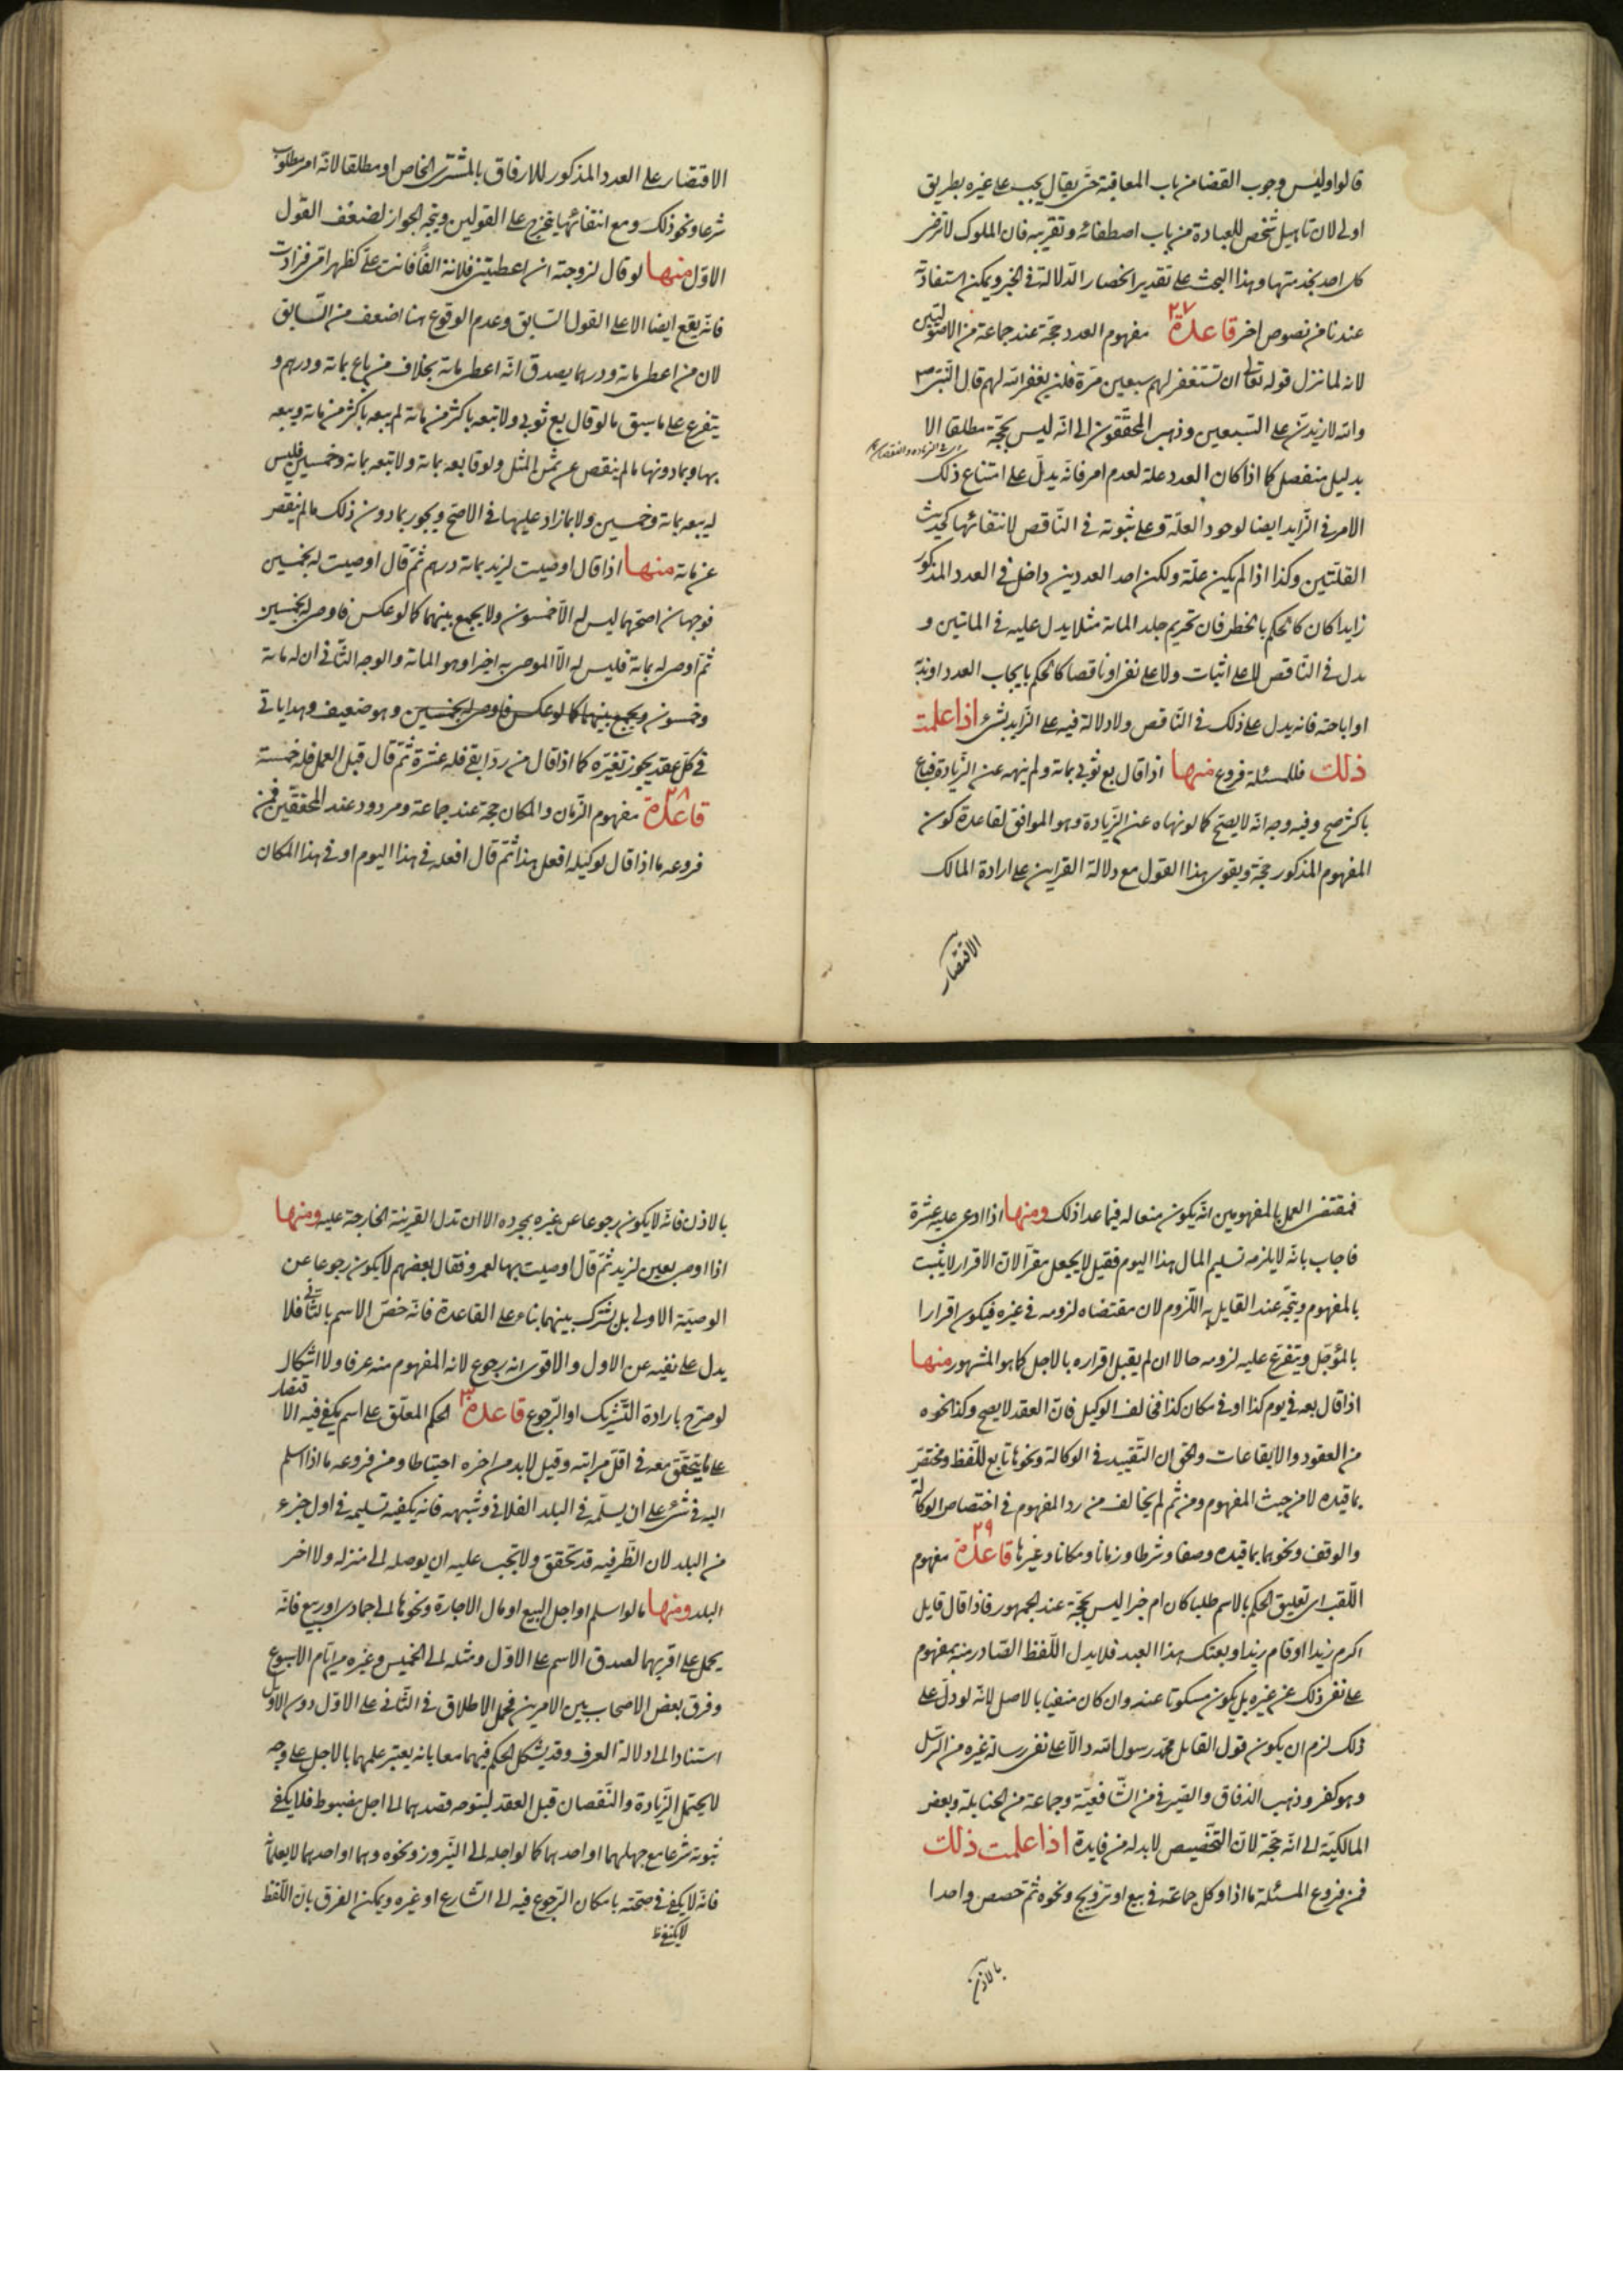 قالوا وليس وجوب القضا من باب المعاقبة حتى يقال يجب على غيره بطريق
اولى لان تاهيل شخص للعبادة من باب اصطفائه وتقريبه فان الملوك لا ترضى
كل احد بخدمتها وهذا البحث على تقدير انحصار الدلالة في الخبر ويمكن استفادته
عندنا من نصوص اخر قاعدة ٢٧ مفهوم العدد حجة عند جماعة من الاصوليين
لانه لما نزل قوله تعالى ان تستغفر لهم سبعين مرة فلن يغفر الله لهم قال النبي ص
والله لازيدن على السبعين وذهب المحققون الى انه ليس بحجة مطلقا الا
بدليل منفصل كما اذا كان العدد علة لعدم امر فانه يدل على امتناع ذلك
الامر في الزايد ايضا لوجود العلة وعلى ثبوته في الناقص لانتفائها كحديث
القلتين وكذا اذا لم يكن علة ولكن احد العددين داخل في العدد المذكور
زايدا كان كالحكم بالحظر فان تحريم جلد المائة مثلا يدل عليه في الماتين و
يدل في الناقص لا على اثبات ولا على نفي او ناقصا كالحكم بايجاب العدد او ندبه
او اباحته فانه يدل على ذلك في الناقص ولا دلالة فيه على الزايد بشئ اذا علمت
ذلك فللمسئلة فروع منها اذا قال بع ثوبي بمائة ولم ينهه عن الزيادة فباع
باكثر صح وفيه وجه انه لا يصح كما لو نهاه عن الزيادة وهو الموافق لقاعدة كون
المفهوم المذكور حجة ويقوى هذا القول مع دلالة القراين على ارادة المالك
الاقتصار
الاقتصار على العدد المذكور للارفاق بالمشترى الخاص او مطلقا لانه امر مطلوب
شرعا ونحو ذلك ومع انتفائها يتخرج على القولين ويتجه الجواز لضعف القول
الاول منها لو قال لزوجته ان اعطيتني فلانة الفا فانت على كظهر امى فزادت
فانه يقع ايضا الا على القول السابق وعدم الوقوع هنا اضعف من السابق
لان من اعطى مائة ودرهما يصدق انه اعطى مائة بخلاف من باع بمائة ودرهم و
يتفرع على ما سبق ما لو قال بع ثوبي ولا تبعه باكثر من مائة لم يبعه باكثر من مائة ويبعه
بها وبما دونها ما لم ينقص عن ثمن المثل ولو قال بعه بمائة ولا تبعه بمائة وخمسين فليس
له بيعه بمائة وخمسين ولا بما زاد عليها في الاصح ويجوز بما دون ذلك ما لم ينقص
عن مائة منها اذا قال اوصيت لزيد بمائة درهم ثم قال اوصيت له بخمسين
فوجهان اصحهما ليس له الا خمسون ولا يجمع بينهما كما لو عكس فاوصى له بخمسين
ثم اوصى له بمائة فليس له الا الموصى به اخيرا وهو المائة والوجه الثاني ان له مائة
وخمسون ويجمع بينهما كما لو عكس فاوصى له بخمسين وهو ضعيف وهذا ياتي
في كل عقد يجوز تغيره كما اذا قال من رد ابقى فله عشرة ثم قال قبل العمل فله خمسة
قاعدة ٢٨ مفهوم الزمان والمكان حجة عند جماعة ومردود عند المحققين فمن
فروعه ما اذا قال لوكيله افعل هذا ثم قال افعله في هذا اليوم او في هذا المكان
فمقتضى العمل بالمفهومين انه يكون منعا له فيما عدا ذلك ومنها اذا ادعى عليه عشرة
فاجاب بانه لا يلزمه تسليم المال هذا اليوم فقيل لا يجعل مقرا لان الاقرار لا يثبت
بالمفهوم ويتجه عند القايل به اللزوم لان مقتضاه لزومه في غيره فيكون اقرارا
بالمؤجل ويتفرع عليه لزومه حالا ان لم يقبل اقراره بالاجل كما هو المشهور منها
اذا قال بعه في يوم كذا او في مكان كذا فخالف الوكيل فان العقد لا يصح وكذا نحوه
من العقود والايقاعات والحق ان التقييد في الوكالة ونحوها تابع للفظ ومختص
بما قيده لا من حيث المفهوم ومن ثم لم يخالف من رد المفهوم في اختصاص الوكالة
والوقف ونحوهما بما قيده وصفا وشرطا وزمانا ومكانا وغيرها قاعدة ٢٩ مفهوم
اللقب اى تعليق الحكم بالاسم طلبا كان ام خبرا ليس بحجة عند الجمهور فاذا قال قايل
اكرم زيدا او قام زيد او بعتك هذا العبد فلا يدل اللفظ الصادر منه بمفهومه
على نفى ذلك عن غيره بل يكون مسكوتا عنه وان كان منفيا بالاصل لانه لو دل على
ذلك لزم ان يكون قول القايل محمد رسول الله دالا على نفى رسالة غيره من الرسل
وهو كفر وذهب الدقاق والصيرفي من الشافعية وجماعة من الحنابلة وبعض
المالكية الى انه حجة لان التخصيص لابد له من فايدة اذا علمت ذلك
فمن فروع المسئلة ما اذا وكل جماعة في بيع او تزويج ونحوه ثم خصص واحدا
بالاذن
بالاذن فانه لا يكون رجوعا عن غيره بمجرده الا ان تدل القرينة الخارجة عليه ومنها
اذا اوصى بعين لزيد ثم قال اوصيت بها لعمرو فقال بعضهم لا يكون رجوعا عن
الوصية الاولى بل يشترك بينهما بناء على القاعدة فانه خص الاسم بالثاني فلا
يدل على نفيه عن الاول والاقوى انه رجوع لانه المفهوم منه عرفا ولا اشكال
لو صرح بارادة التشريك او الرجوع قاعدة ٣٠ الحكم المعلق على اسم يكفى فيه الاقتصار
على ما يتحقق معه في اقل مراتبه وقيل لابد من اخره احتياطا ومن فروعه ما اذا اسلم
اليه في شئ على ان يسلمه في البلد الفلاني وشبهه فانه يكفيه تسليمه في اول جزء
من البلد لان الظرفيه قد تحقق ولا يجب عليه ان يوصله الى منزله ولا اخر
البلد ومنها ما لو اسلم او اجل البيع او مال الاجارة ونحوها الى جمادى او ربيع فانه
يحمل على اقربهما لصدق الاسم على الاول ومثله الى الخميس وغيره من ايام الاسبوع
وفرق بعض الاصحاب بين الامرين فحمل الاطلاق في الثاني على الاول دون الاول
استنادا الى دلالة العرف وقد يشكل الحكم فيهما معا بانه يعتبر علمهما بالاجل على وجه
لا يحتمل الزيادة والنقصان قبل العقد ليتوجه قصدهما الى اجل مضبوط فلا يكفى
ثبوته شرعا مع جهلهما او احدهما كما لو اجله الى النيروز ونحوه وهما او احدهما لا يعلمانه
فانه لا يكفى في صحته بامكان الرجوع فيه الى الشارع او غيره ويمكن الفرق بان اللفظ